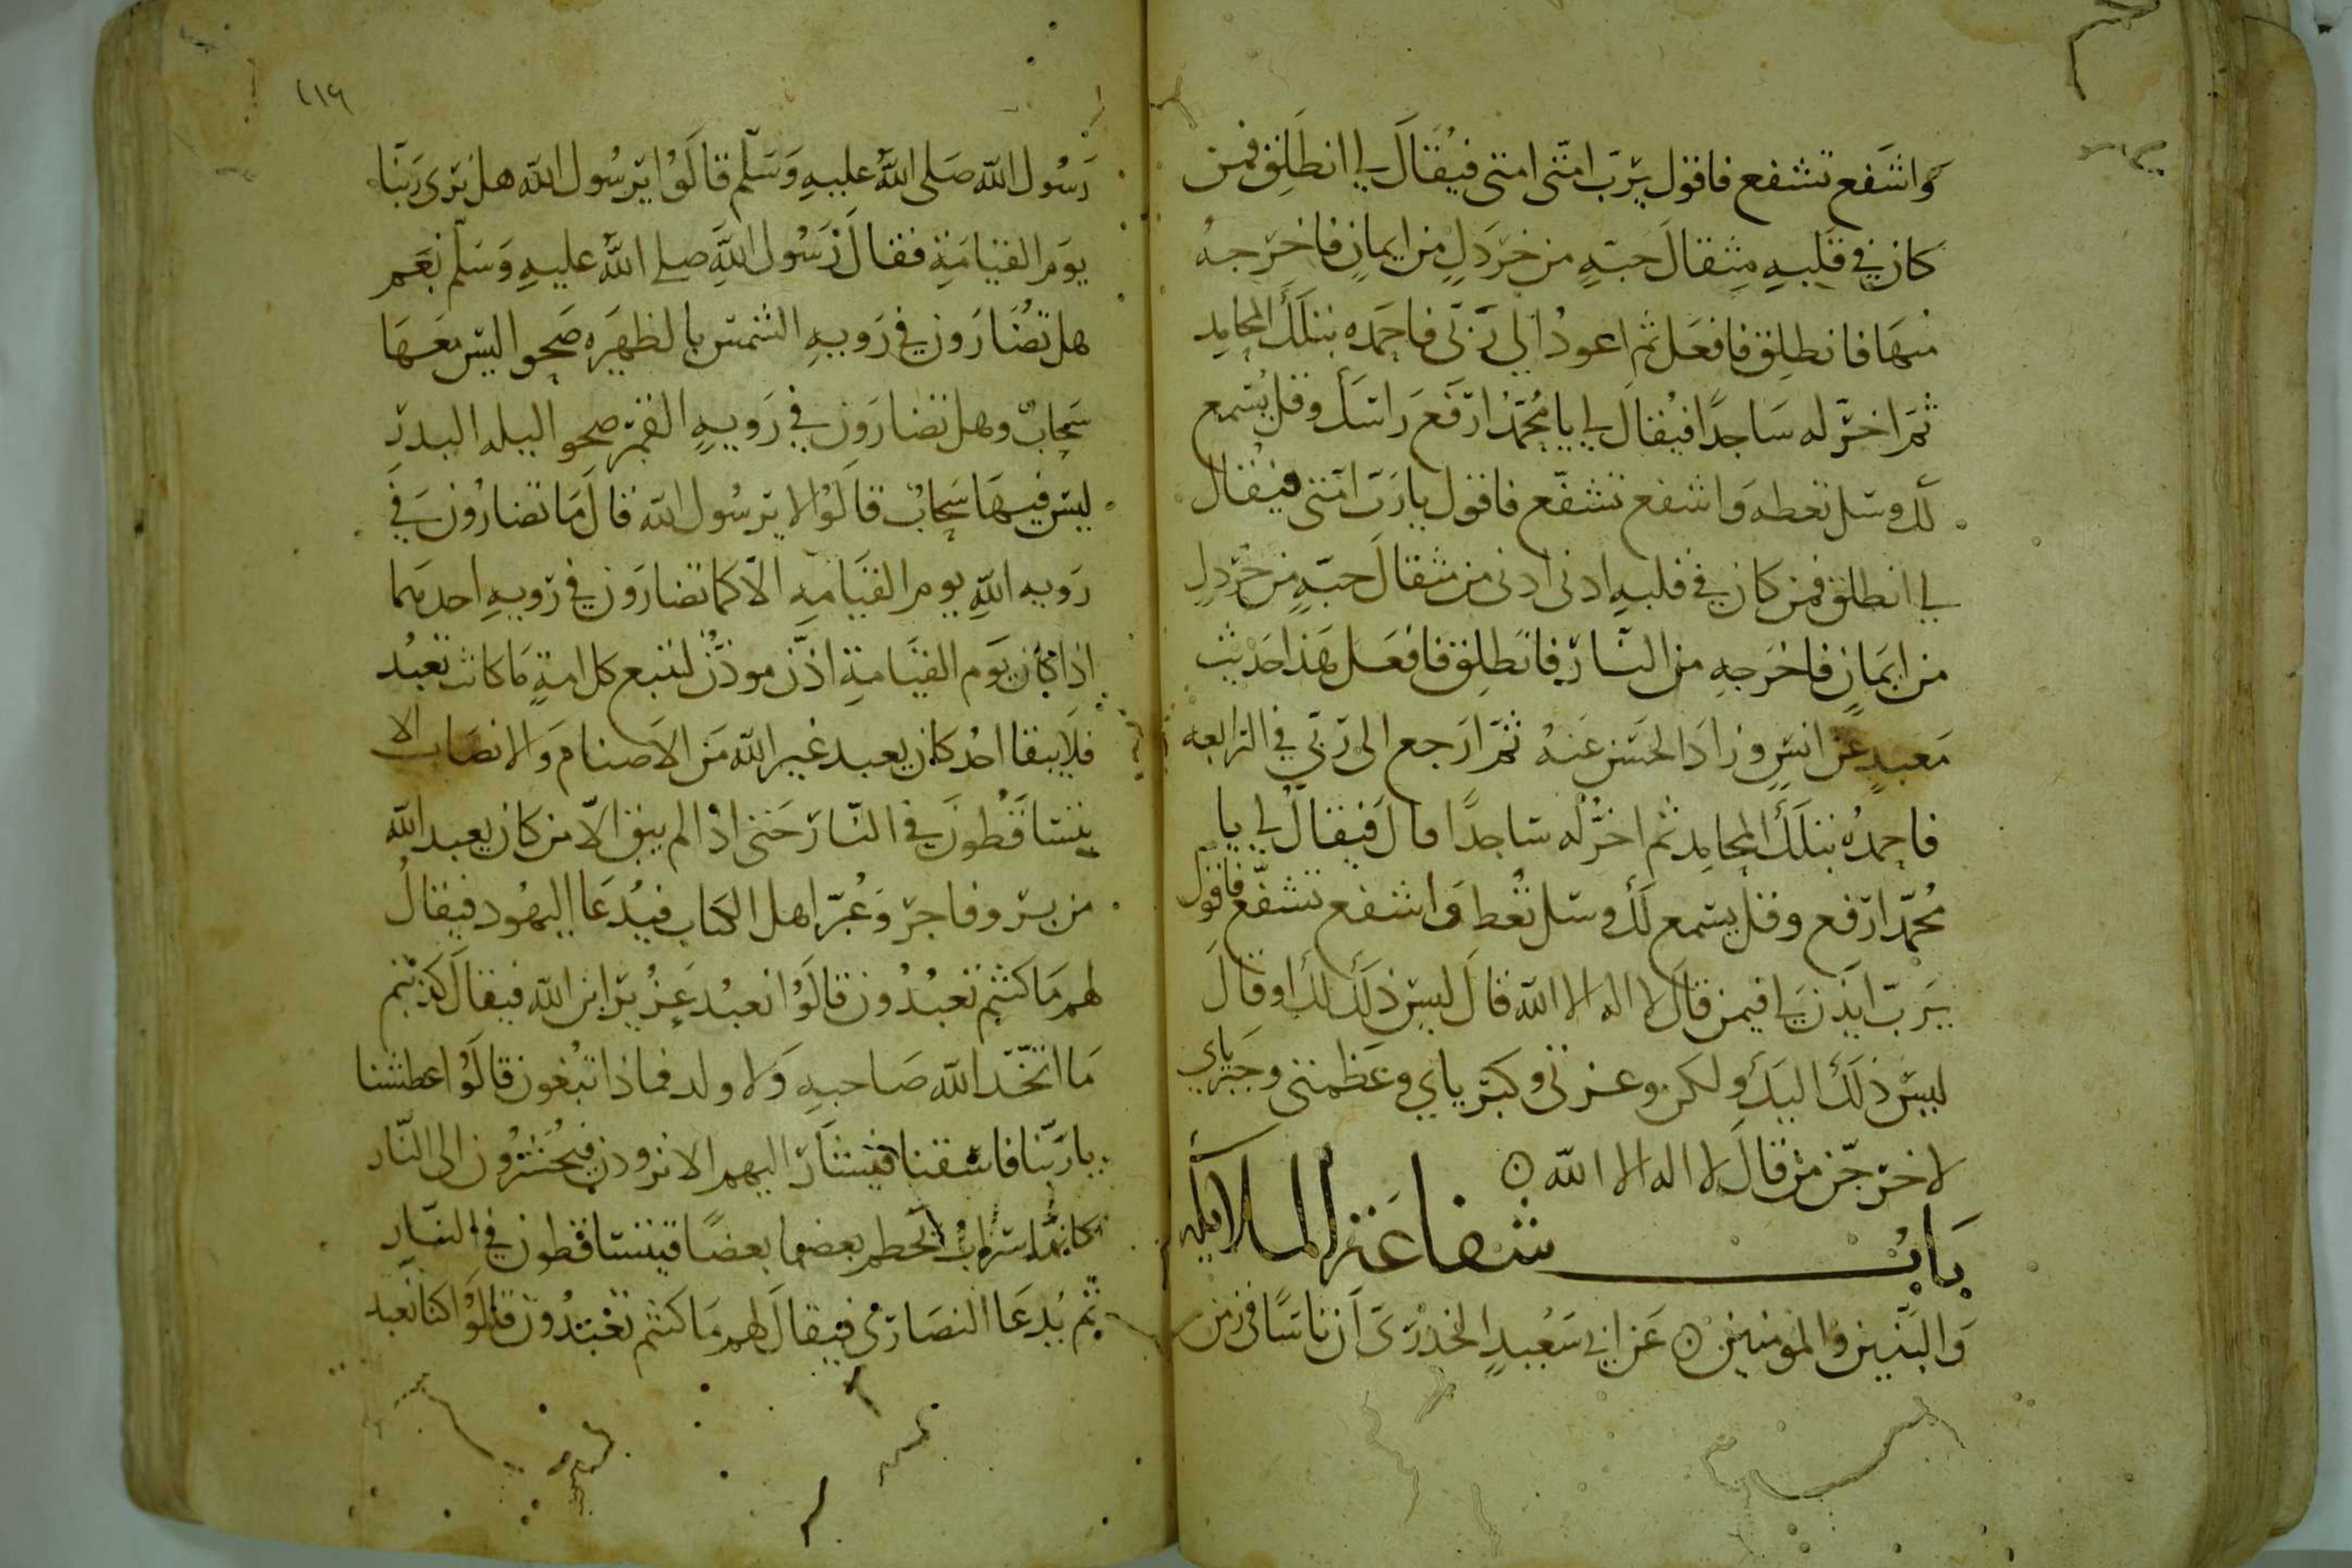 واشفع تشفع فاقول يرب امتى امتى فيقال لي انطلق فمن
كان في قلبه مثقال حبة من خردل من ايمان فاخرجه
منها فانطلق فافعل ثم اعود الى ربى فاحمده بتلك المحامد
ثم اخر له ساجدا فيقال لي يا محمد ارفع راسك وقل يسمع
لك وسل تعطه واشفع تشفع فاقول يا رب امتى فيقال
لي انطلق فمن كان في قلبه ادنى ادنى من مثقال حبة من خردل
من ايمان فاخرجه من النار فانطلق فافعل هذا حديث
معبد عن انس وزاد الحسن عنه ثم ارجع الى ربي في الرابعه
فاحمده بتلك المحامد ثم اخر له ساجدا قال فيقال لي يا
محمد ارفع وقل يسمع لك وسل تعط واشفع تشفع فاقول
يرب ايذن لي فيمن قال لا اله الا الله قال ليس ذلك لك او قال
ليس ذلك اليك ولكن وعزتى وكبرياي وعظمتى وجبرياي
لاخرجن من قال لا اله الا الله
باب شفاعة الملايكه
والنبيين والمومنين عن ابي سعيد الخدرى ان ناسا في زمن
٢١٦
رسول الله صلى الله عليه وسلم قالوا يرسول الله هل نرى ربنا
يوم القيامة فقال رسول الله صلى الله عليه وسلم نعم
هل تضارون في روية الشمس بالظهيره صحوا ليس معها
سحاب وهل تضارون في روية القمر صحوا ليله البدر
ليس فيها سحاب قالوا لا يرسول الله قال ما تضارون في
رويه الله يوم القيامه الا كما تضارون في روية احدهما
اذا كان يوم القيامة اذن موذن لتتبع كل امة ما كانت تعبد
فلا يبقا احد كان يعبد غير الله من الاصنام والانصاب الا
يتساقطون في النار حتى اذا لم يبق الا من كان يعبد الله
من بر وفاجر وغبر اهل الكتاب فيدعا اليهود فيقال
لهم ما كنتم تعبدون قالوا نعبد عزير ابن الله فيقال كذبتم
ما اتخذ الله صاحبه ولا ولد فماذا تبغون قالوا عطشنا
يا ربنا فاسقنا فيشار اليهم الا تردون فيحشرون الى النار
كانها سراب يحطم بعضها بعضا فيتساقطون في النار
ثم يدعا النصارى فيقال لهم ما كنتم تعبدون قالوا كنا نعبد